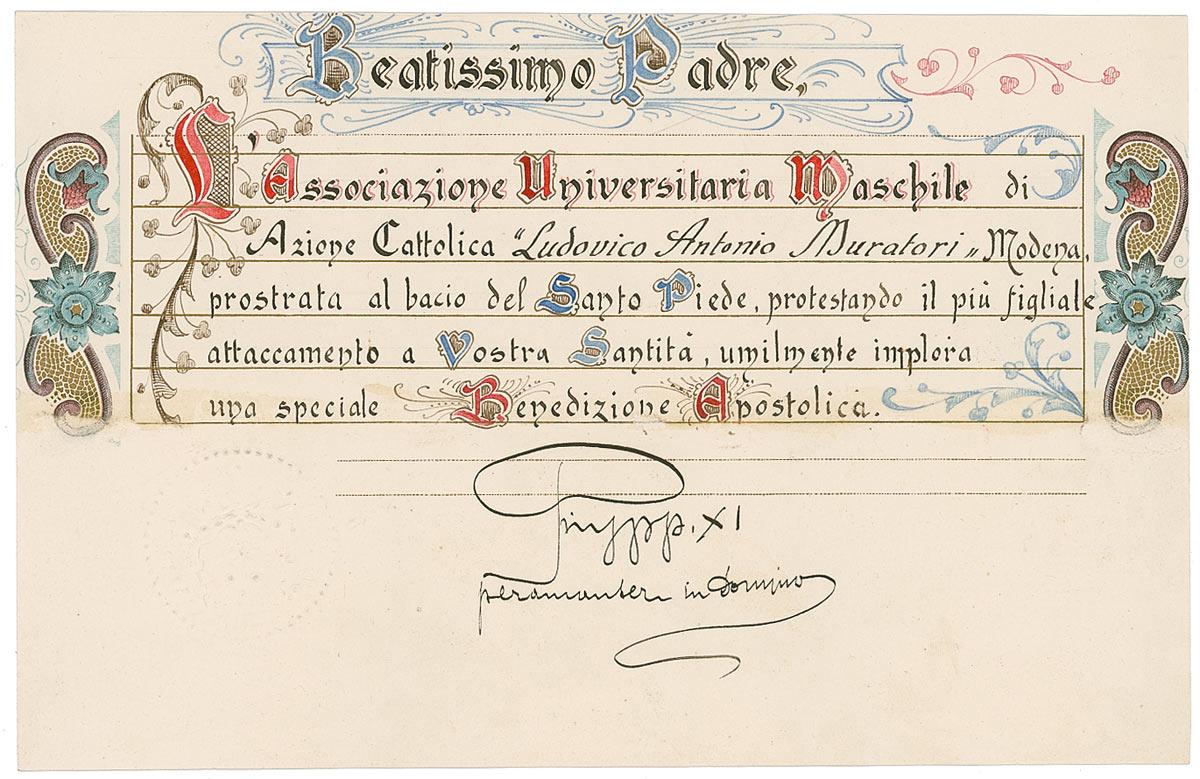 Beatissimo Padre,
L'Associazione Universitaria Maschile di
Azione Cattolica "Ludovico Antonio Muratori" Modena,
prostrata al bacio del Santo Piede, protestando il più figliale
attaccamento a Vostra Santità, umilmente implora
una speciale Benedizione Apostolica.
Pius pp. XI
peramanter in Domino